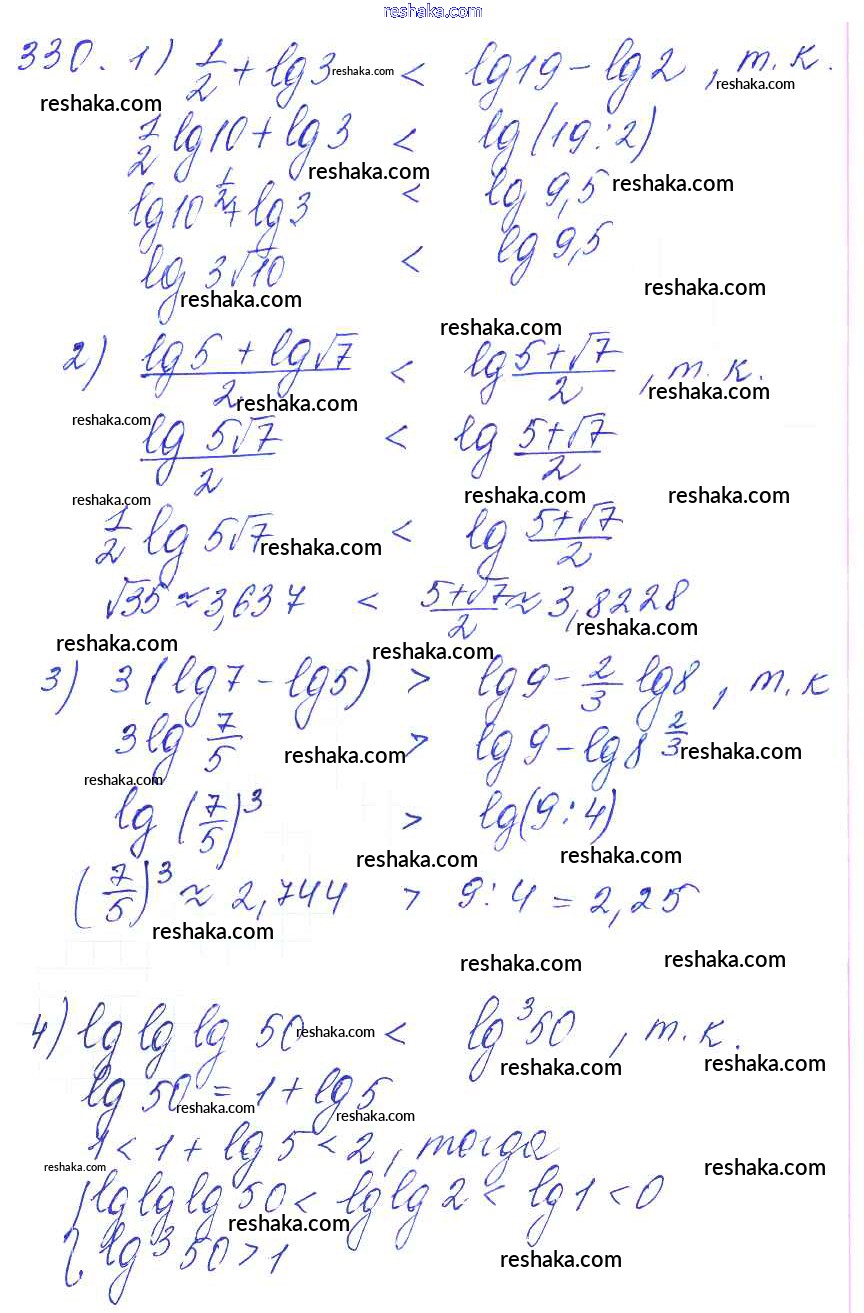 reshaka.com
330. 1) 1/2 + lg3 < lg19 - lg2, т.к.
reshaka.com reshaka.com reshaka.com
1/2 lg10 + lg3 < lg(19:2)
reshaka.com reshaka.com
lg10^(1/2) + lg3 < lg 9,5
lg 3√10 < lg 9,5
reshaka.com reshaka.com
reshaka.com
2) (lg5 + lg√7)/2 < lg (5+√7)/2, т.к.
reshaka.com reshaka.com reshaka.com
(lg 5√7)/2 < lg (5+√7)/2
reshaka.com reshaka.com reshaka.com
1/2 lg 5√7 < lg (5+√7)/2
reshaka.com
√35 ≈ 3,637 < (5+√7)/2 ≈ 3,8228
reshaka.com reshaka.com reshaka.com
3) 3(lg7 - lg5) > lg9 - 2/3 lg8, т.к
3lg 7/5 > lg9 - lg8^(2/3)
reshaka.com reshaka.com reshaka.com
lg (7/5)^3 > lg(9:4)
reshaka.com reshaka.com
(7/5)^3 ≈ 2,744 > 9:4 = 2,25
reshaka.com
reshaka.com reshaka.com
4) lg lg lg 50 < lg^3 50, т.к.
reshaka.com reshaka.com reshaka.com
lg 50 = 1 + lg5
reshaka.com reshaka.com
1 < 1 + lg5 < 2, тогда
reshaka.com reshaka.com
{ lg lg lg 50 < lg lg 2 < lg 1 < 0
reshaka.com
lg^3 50 > 1
reshaka.com